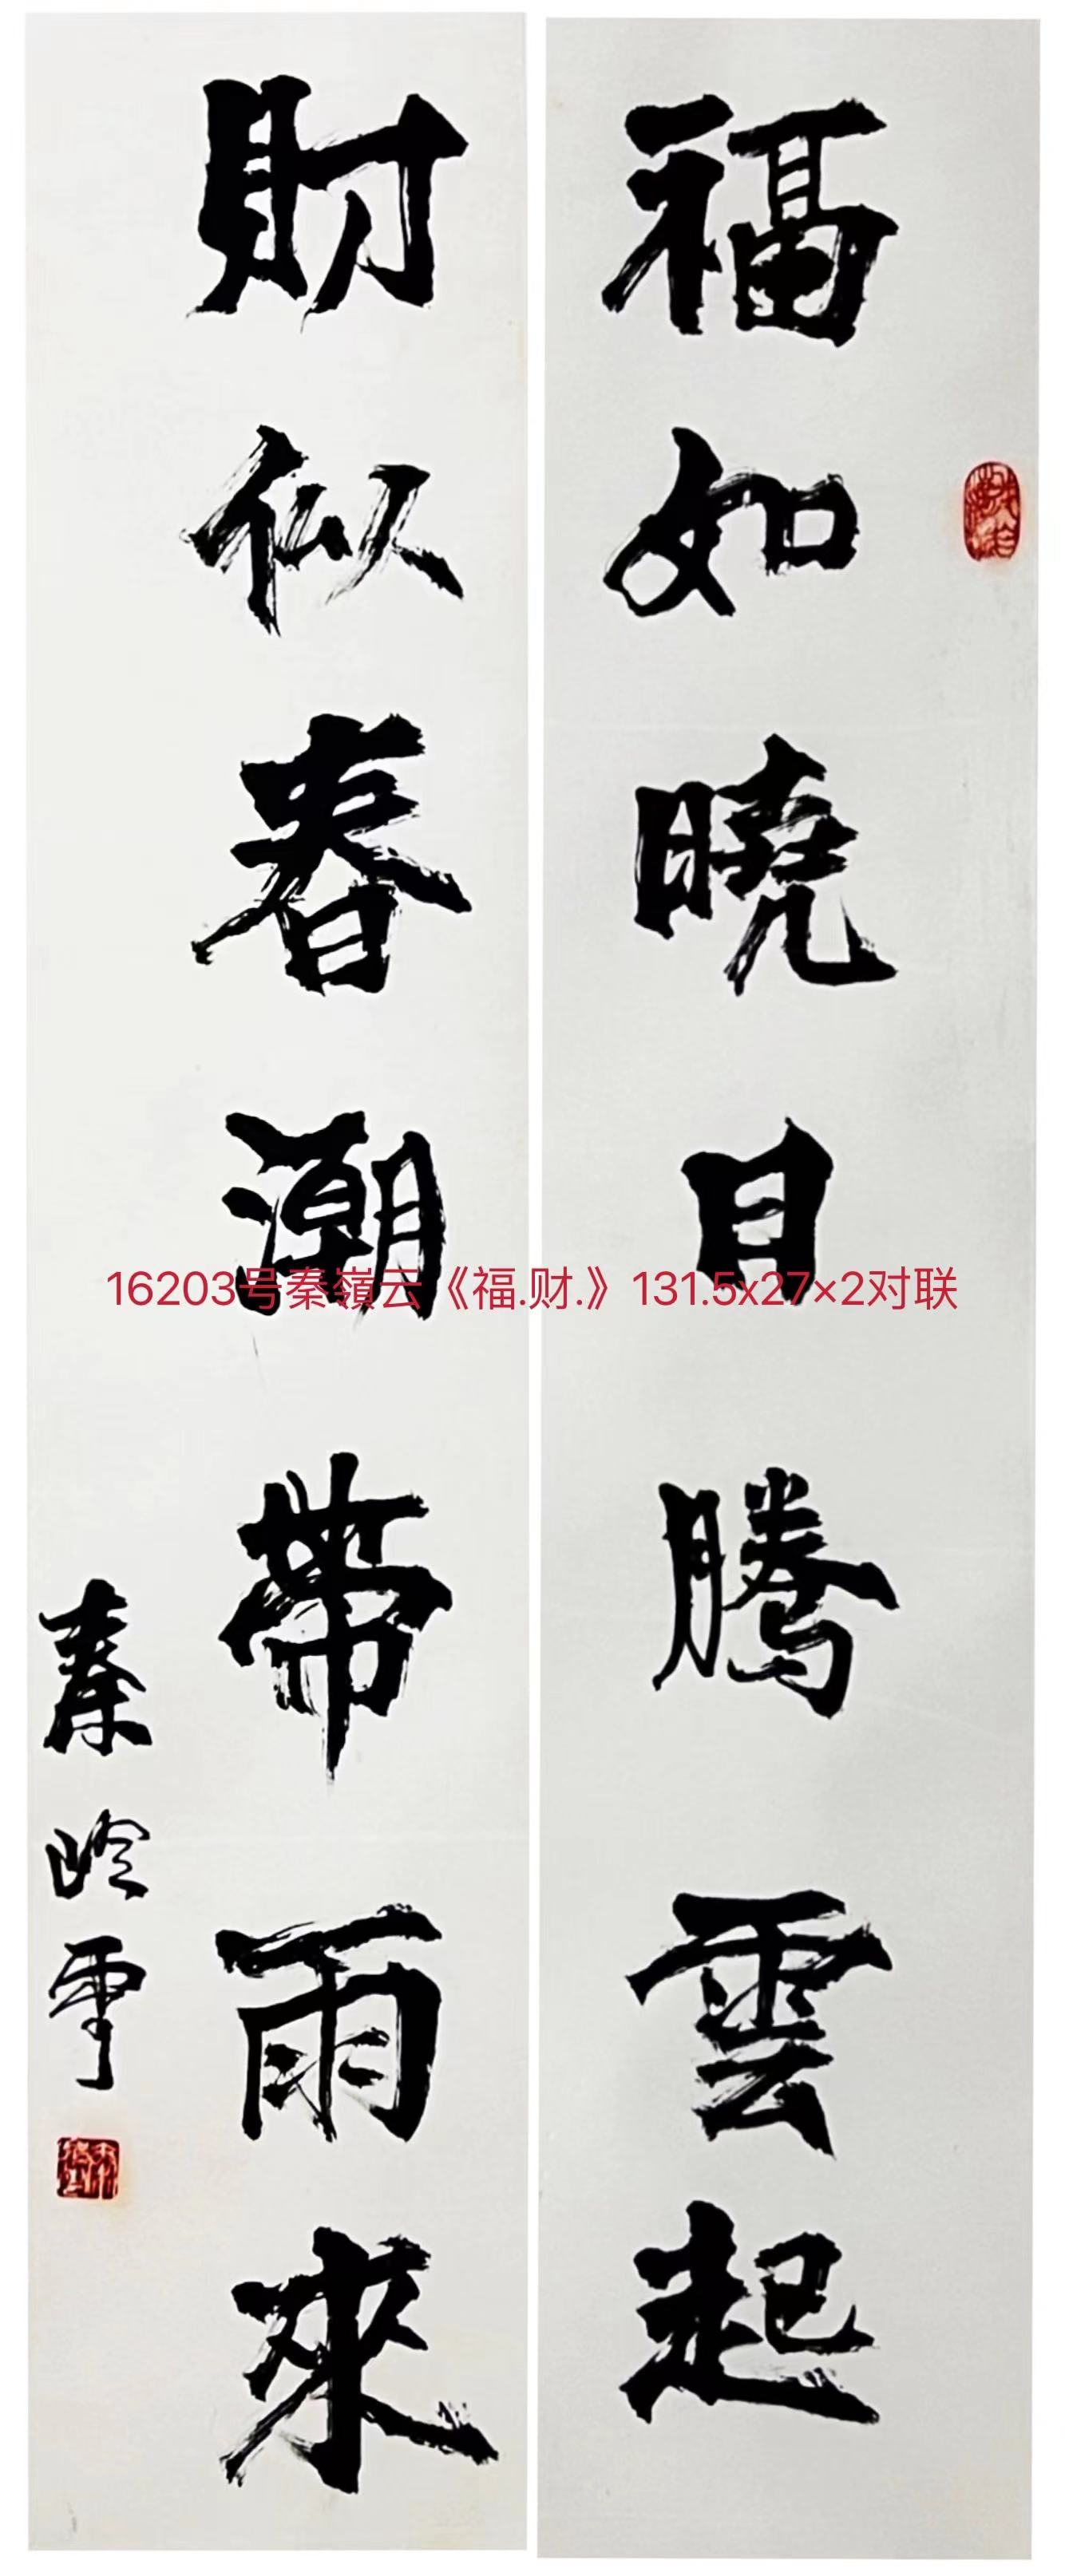 福如曉日騰雲起
財似春潮帶雨來
秦岭雲
16203号秦嶺云《福.财.》131.5x27×2对联